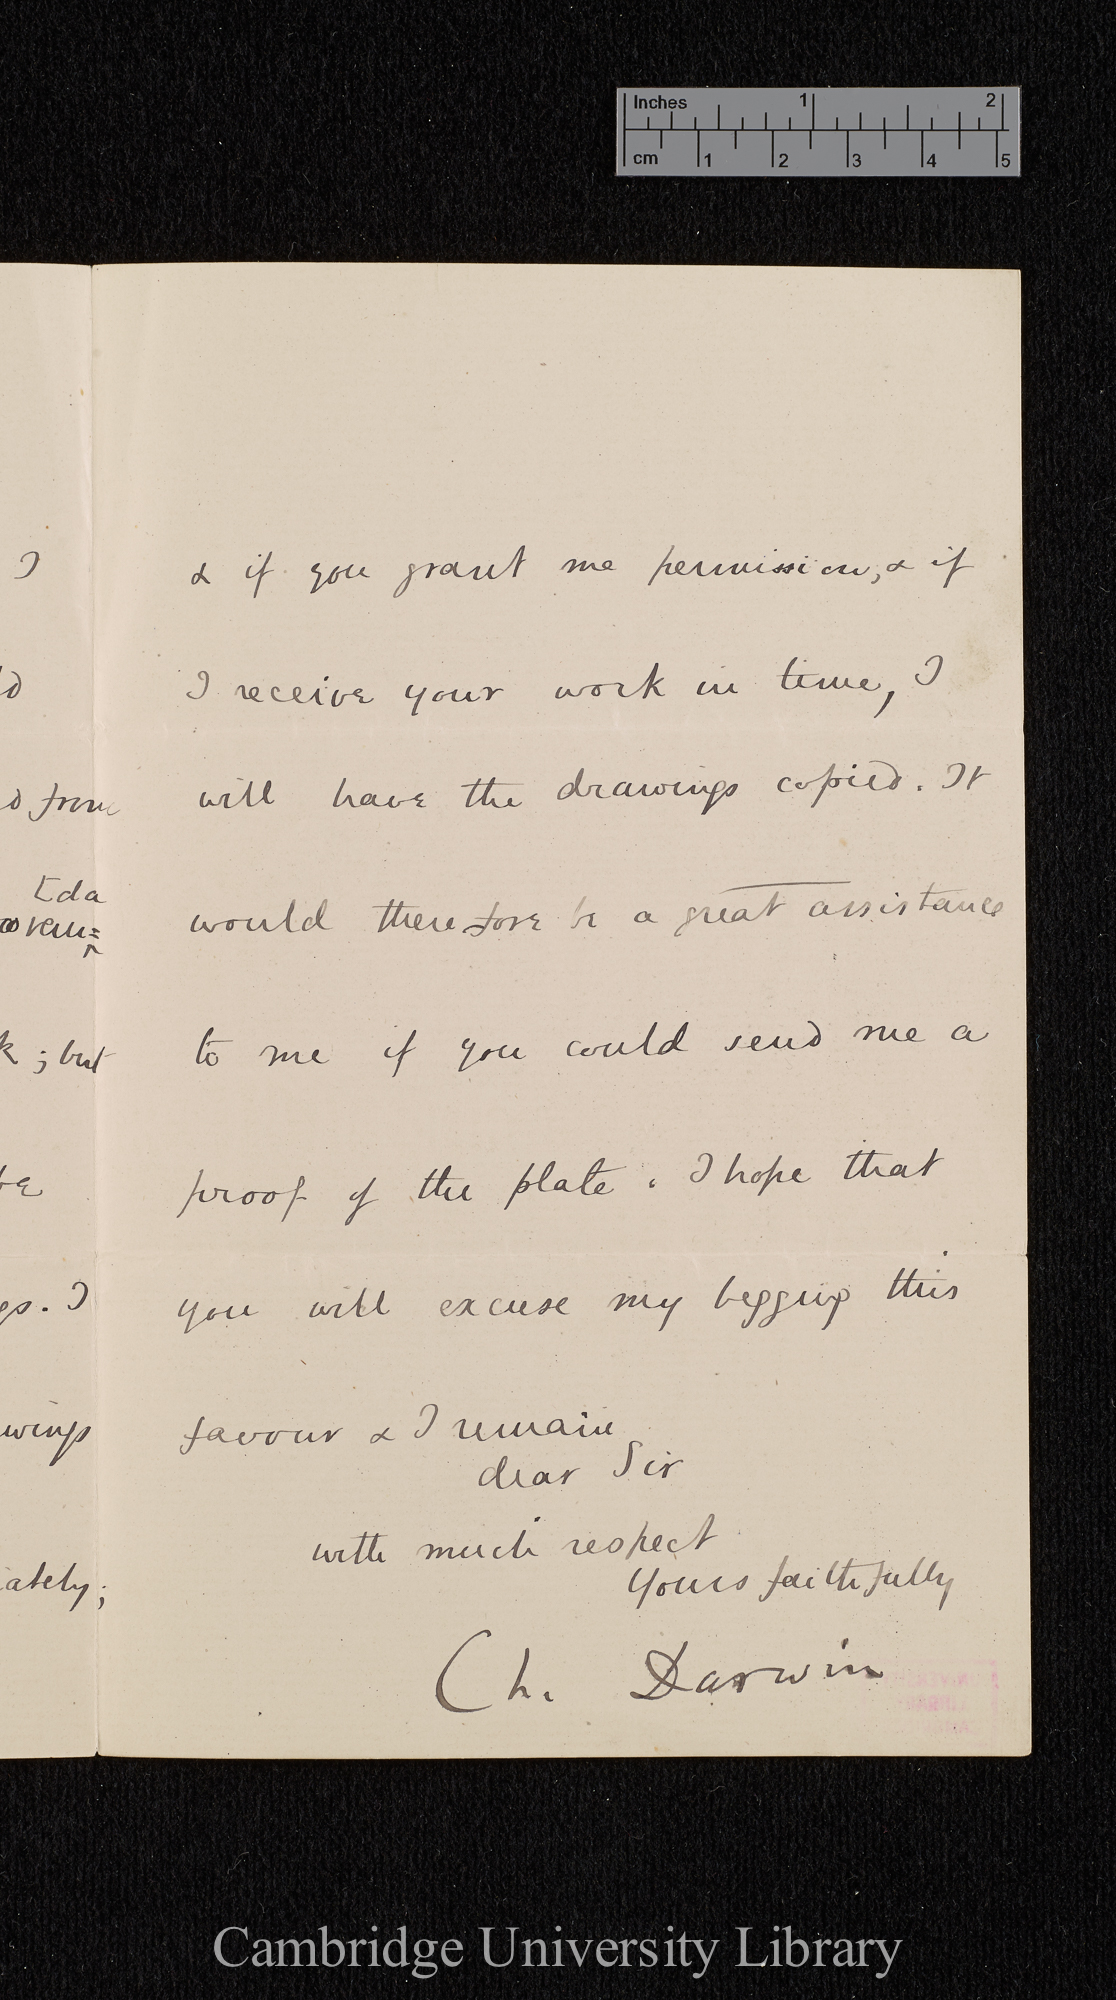 Inches 1 2
cm 1 2 3 4 5
I
& if you grant me permission, & if
I receive your work in time, I
d from
will have the drawings copied. It
would therefore be a great assistance
; but
to me if you could send me a
proof of the plate. I hope that
gs. I
you will excuse my begging this
wings
favour & I remain
dear Sir
with much respect
ately;
Yours faithfully
Ch. Darwin
Cambridge University Library